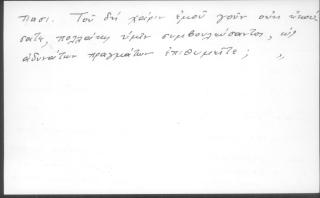 Πασι. Τοῦ δὴ χάριν ἐμοῦ γοῦν οὐκ ἠκού
σατε, πολλάκις ὑμῖν συμβουλεύσαντος, ὡς
ἀδυνάτων πραγμάτων ἐπιθυμεῖτε; „